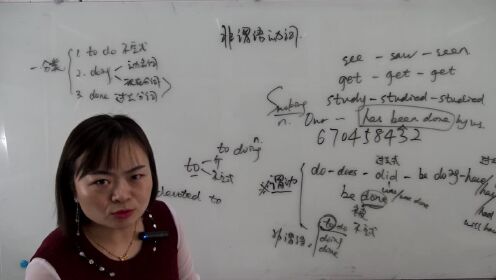 非谓语动词
一分类
1. to do 不定式
2. doing 动名词
现在分词
3. done 过去分词
see - saw - seen
get - get - get
study - studied - studied
Smoking
n. Our - has been done by us
670458432
to doing n.
to 介
不定式
devoted to
※谓动
过去式
do - does - did - be doing - have/
be done
非谓语
to do 不定式
doing
done
will have